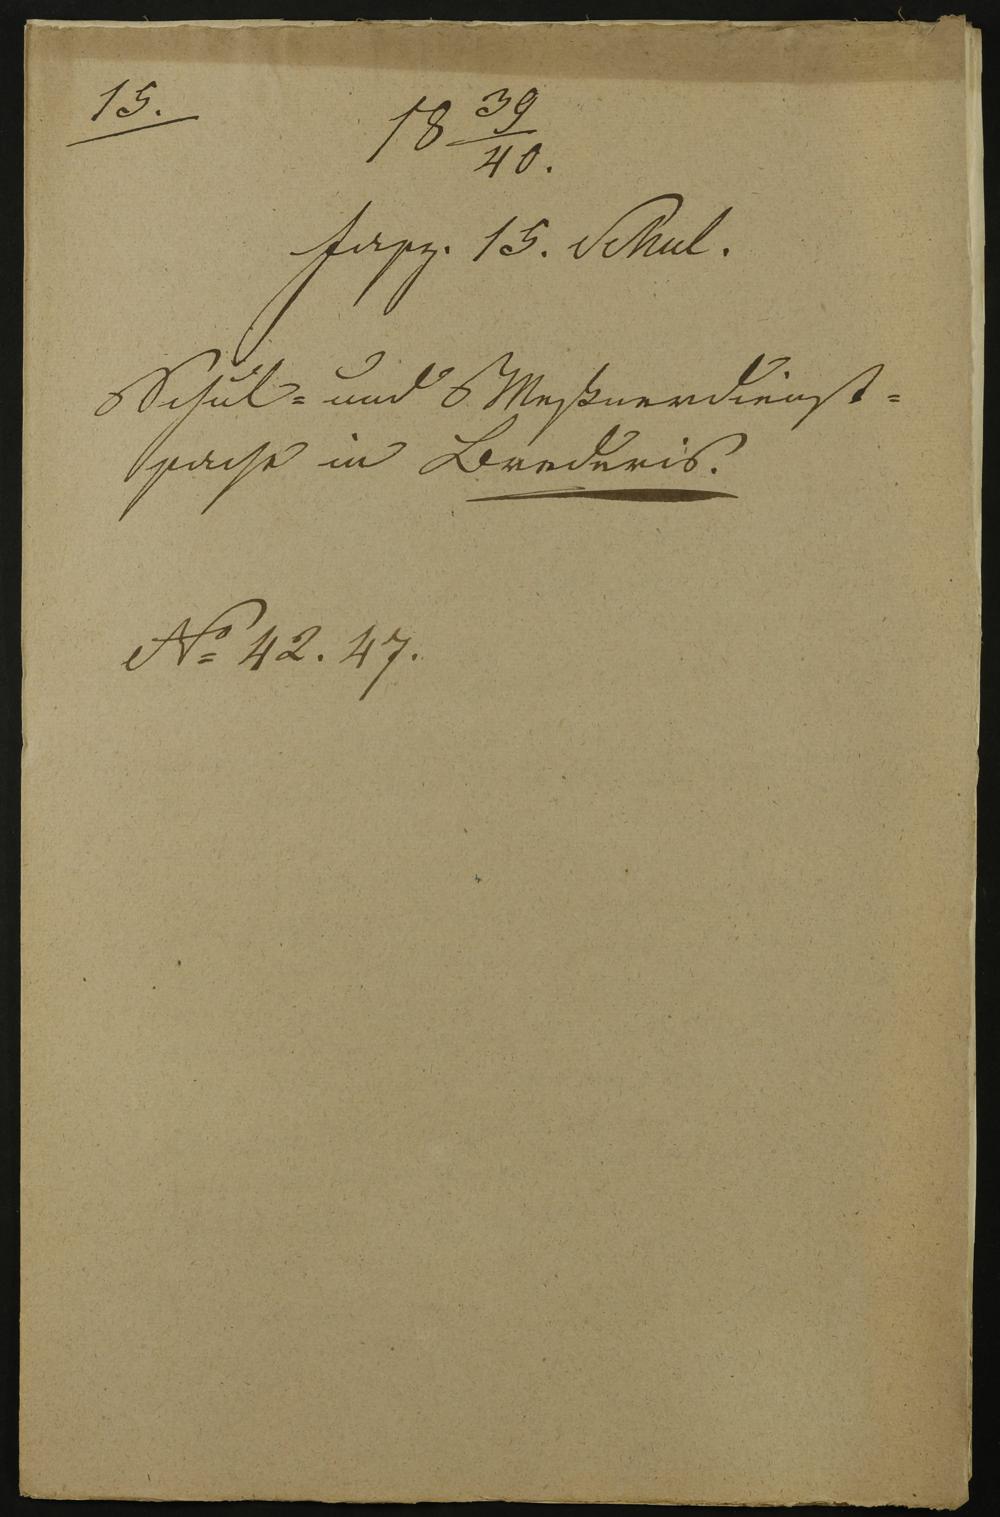 15.
18 39/40.
fasz. 15. Schul.
Schul- und Meßnerdienst-
sache in Brederis.
No 42. 47.